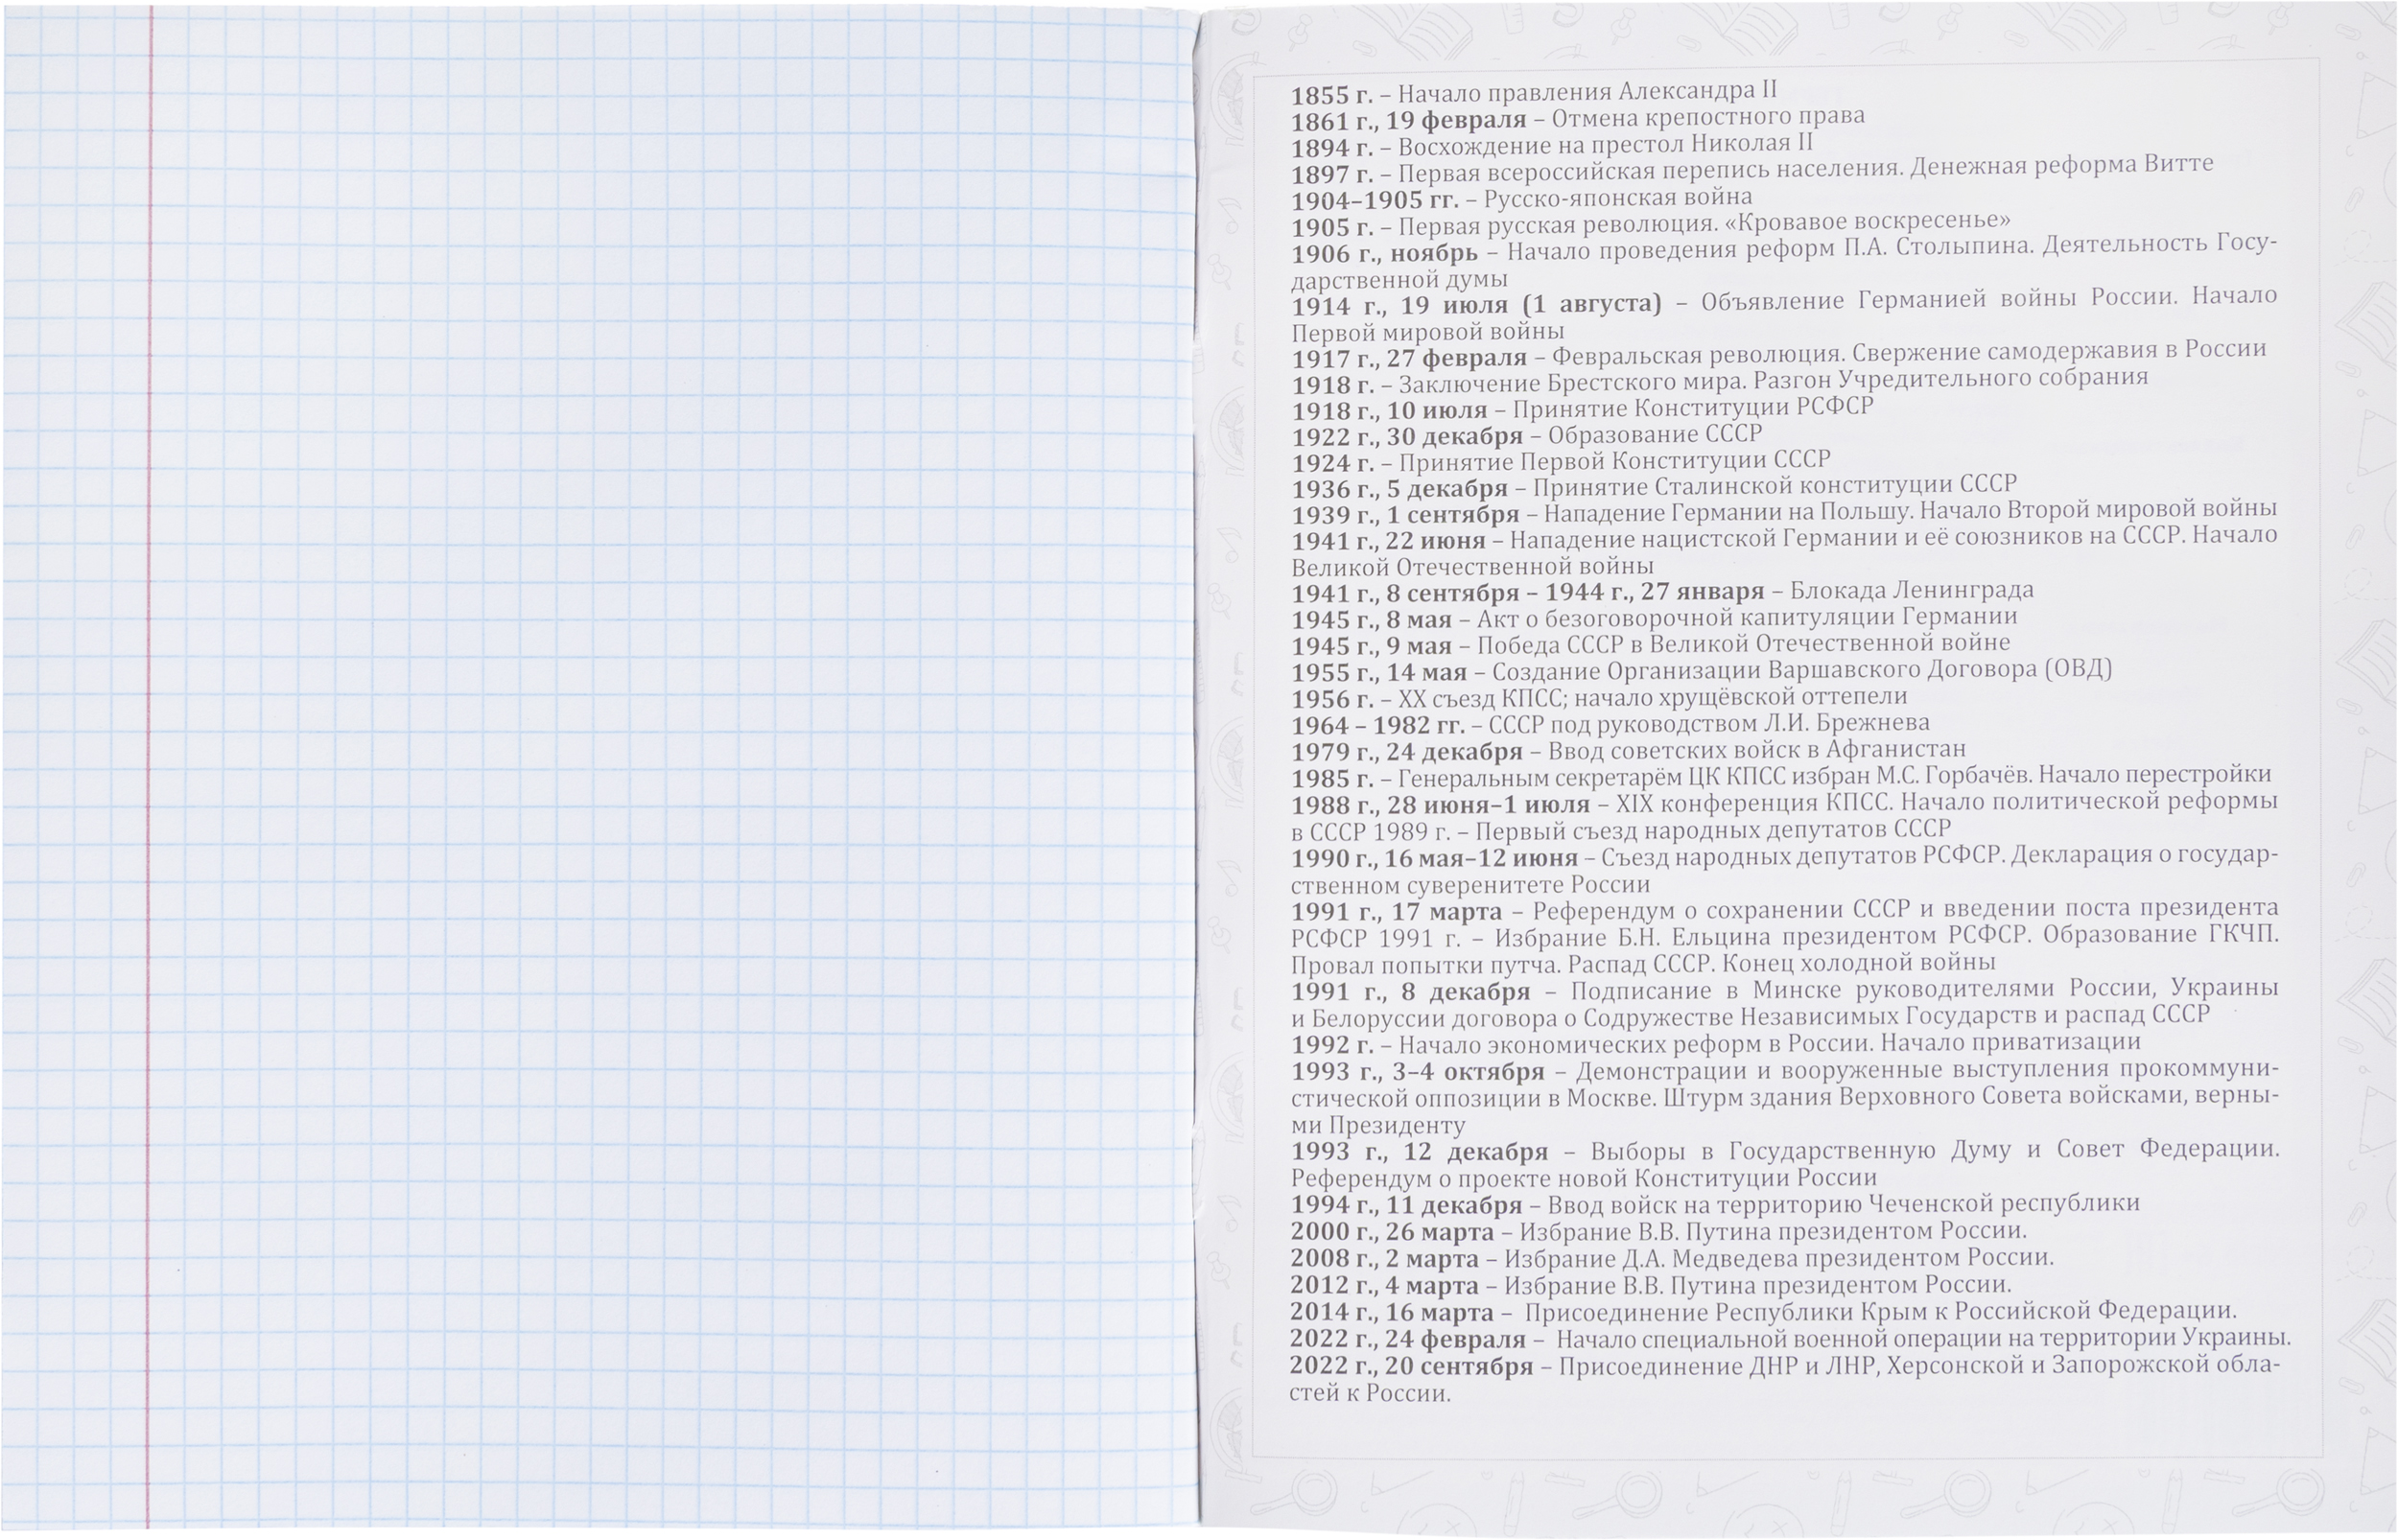 1855 г. – Начало правления Александра II
1861 г., 19 февраля – Отмена крепостного права
1894 г. – Восхождение на престол Николая II
1897 г. – Первая всероссийская перепись населения. Денежная реформа Витте
1904–1905 гг. – Русско-японская война
1905 г. – Первая русская революция. «Кровавое воскресенье»
1906 г., ноябрь – Начало проведения реформ П.А. Столыпина. Деятельность Госу-
дарственной думы
1914 г., 19 июля (1 августа) – Объявление Германией войны России. Начало
Первой мировой войны
1917 г., 27 февраля – Февральская революция. Свержение самодержавия в России
1918 г. – Заключение Брестского мира. Разгон Учредительного собрания
1918 г., 10 июля – Принятие Конституции РСФСР
1922 г., 30 декабря – Образование СССР
1924 г. – Принятие Первой Конституции СССР
1936 г., 5 декабря – Принятие Сталинской конституции СССР
1939 г., 1 сентября – Нападение Германии на Польшу. Начало Второй мировой войны
1941 г., 22 июня – Нападение нацистской Германии и её союзников на СССР. Начало
Великой Отечественной войны
1941 г., 8 сентября – 1944 г., 27 января – Блокада Ленинграда
1945 г., 8 мая – Акт о безоговорочной капитуляции Германии
1945 г., 9 мая – Победа СССР в Великой Отечественной войне
1955 г., 14 мая – Создание Организации Варшавского Договора (ОВД)
1956 г. – XX съезд КПСС; начало хрущёвской оттепели
1964 – 1982 гг. – СССР под руководством Л.И. Брежнева
1979 г., 24 декабря – Ввод советских войск в Афганистан
1985 г. – Генеральным секретарём ЦК КПСС избран М.С. Горбачёв. Начало перестройки
1988 г., 28 июня–1 июля – XIX конференция КПСС. Начало политической реформы
в СССР 1989 г. – Первый съезд народных депутатов СССР
1990 г., 16 мая–12 июня – Съезд народных депутатов РСФСР. Декларация о государ-
ственном суверенитете России
1991 г., 17 марта – Референдум о сохранении СССР и введении поста президента
РСФСР 1991 г. – Избрание Б.Н. Ельцина президентом РСФСР. Образование ГКЧП.
Провал попытки путча. Распад СССР. Конец холодной войны
1991 г., 8 декабря – Подписание в Минске руководителями России, Украины
и Белоруссии договора о Содружестве Независимых Государств и распад СССР
1992 г. – Начало экономических реформ в России. Начало приватизации
1993 г., 3–4 октября – Демонстрации и вооруженные выступления прокоммуни-
стической оппозиции в Москве. Штурм здания Верховного Совета войсками, верны-
ми Президенту
1993 г., 12 декабря – Выборы в Государственную Думу и Совет Федерации.
Референдум о проекте новой Конституции России
1994 г., 11 декабря – Ввод войск на территорию Чеченской республики
2000 г., 26 марта – Избрание В.В. Путина президентом России.
2008 г., 2 марта – Избрание Д.А. Медведева президентом России.
2012 г., 4 марта – Избрание В.В. Путина президентом России.
2014 г., 16 марта – Присоединение Республики Крым к Российской Федерации.
2022 г., 24 февраля – Начало специальной военной операции на территории Украины.
2022 г., 20 сентября – Присоединение ДНР и ЛНР, Херсонской и Запорожской обла-
стей к России.